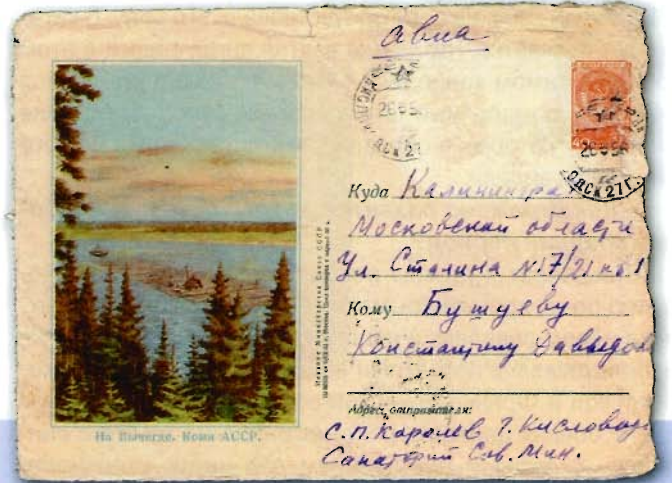 Авиа
Куда Калинингра
Московской области
Ул. Сталина №17/21 кв. 1
Кому Бушуеву
Константину Давыдов
Адрес отправителя:
С.П. Королев г. Кисловод
Санаторий Сов. Мин.
На Вычегде. Коми АССР.